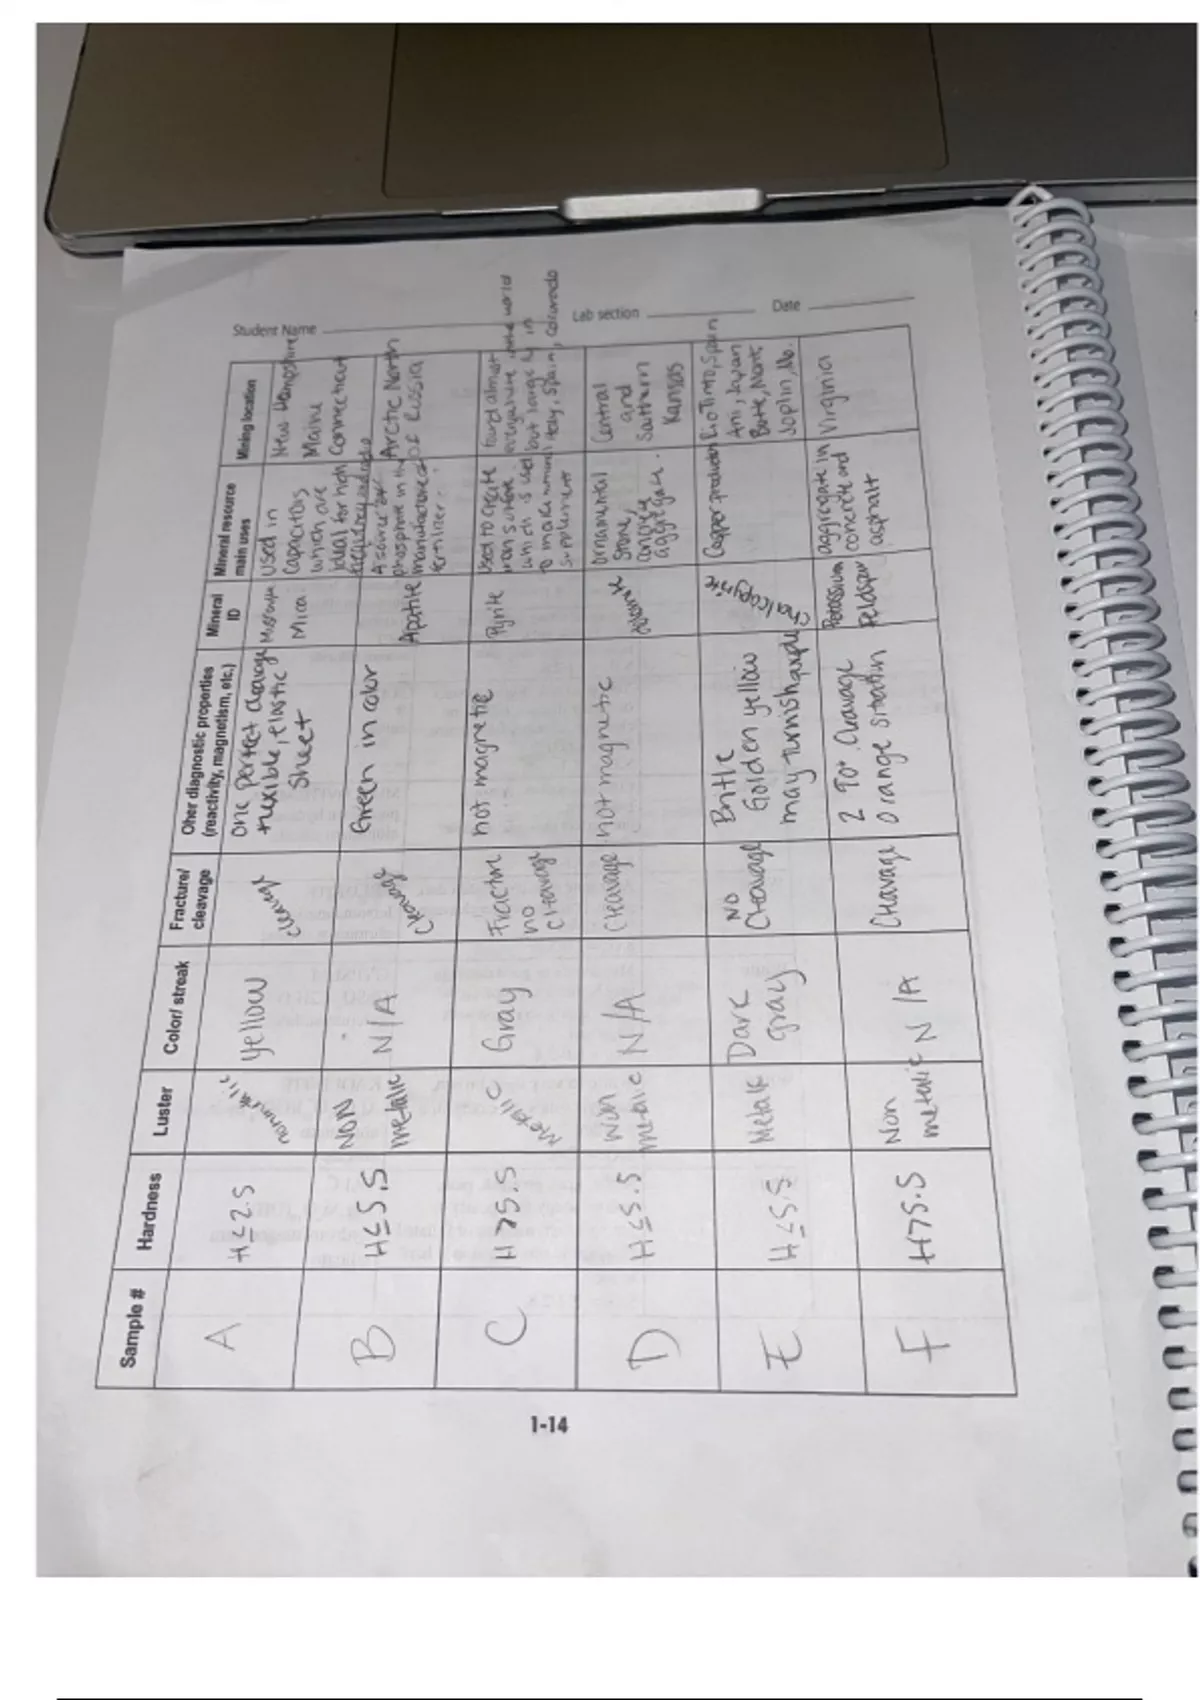 Student Name
Lab section
Date
Sample #
Hardness
Luster
Color/ streak
Fracture/
cleavage
Oher diagnostic properties
(reactivity, magnetism, etc.)
Mineral
ID
Mineral resource
main uses
Mining location
A
H ≤ 2.5
nonmetalic
yellow
cleavage
One perfect cleavage
flexible, elastic
sheet
Mica
Used in
capacitors
which are
ideal for high
New Hampshire
Maine
Connecticut
B
H ≤ 5.5
NON
metalic
N/A
cleavage
Green in color
Apatite
phosphore in the
manufacture of
fertilizer.
Arctic North
Of Russia
C
H > 5.5
Metallic
Gray
Fractnre
no
cleavage
not magnetic
Pyrite
Used to create
iron sulfate
which is used
to make
supplement
found almost
everywhere in the world
but largely in
Italy, Spain, Colorado
D
H ≤ 5.5
Non
metalic
N/A
Cleavage
not magnetic
Ornamental
stone,
concrete
aggregate.
Central
and
Southern
Kansas
E
H ≤ 5.5.
Metalic
Darc
gray
NO
Cleavage
Brittle
Golden yellow
may turnish purple
Chalcopyrite
Copper production
Rio Tinto, Spain
Japan
Butte, Mont.
Joplin, Mo.
F
H > 5.5
Non
metalic
N/A
Cleavage
2 90° Cleavage
Orange
Potassium
Feldspar
aggregate in
concrete and
asphalt
Virginia
1-14